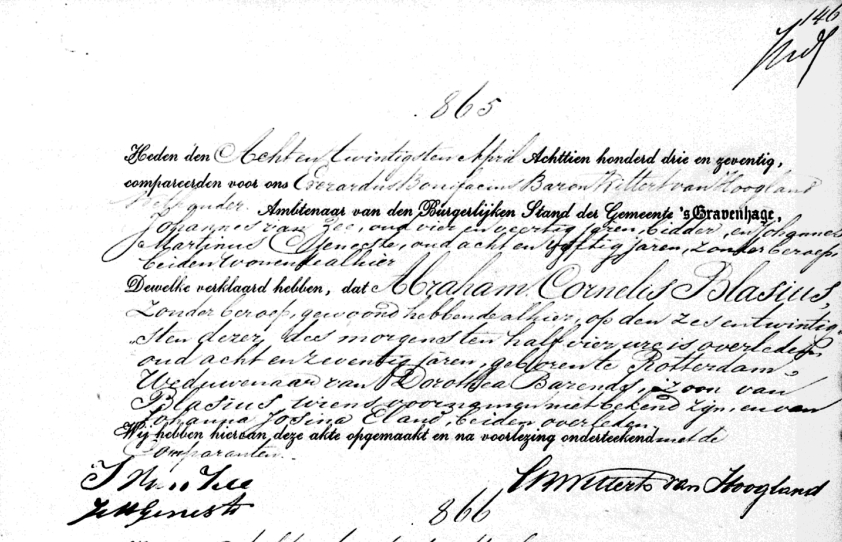 146
865
Heden den Acht en twintigsten April Achttien honderd drie en zeventig,
compareerden voor ons Everardus Bonifacius Baron Wittert van Hoogland
Wethouder. Ambtenaar van den Burgerlijken Stand der Gemeente 's Gravenhage,
Johannes van Zee, oud vier en veertig jaren, bidder, en Johannes
Martinus Geneste, oud acht en vijftig jaren, zonder beroep
beiden wonende alhier
Dewelke verklaard hebben, dat Abraham Cornelis Blasius,
zonder beroep, gewoond hebbende alhier, op den zes en twintig-
sten dezer, des morgens ten half vier ure is overleden,
oud acht en zeventig jaren, geboren te Rotterdam
Weduwenaar van Dorothea Barends, zoon van
Blasius, wiens voornamen niet bekend zijn, en van
Johanna Josina Eland, beiden overleden.
Wij hebben hiervan deze akte opgemaakt en na voorlezing onderteekend met de
Comparanten.
J van Zee
Wittert van Hoogland
JM Geneste
866